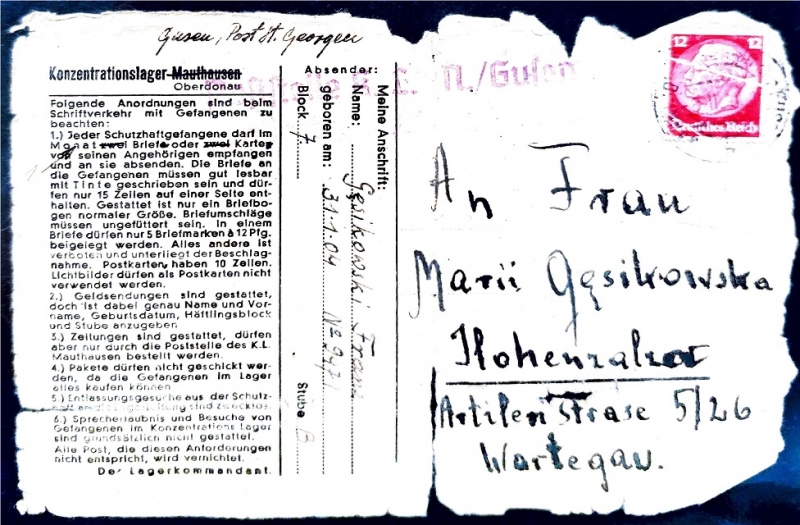 Gusen, Post St. Georgen
Konzentrationslager Mauthausen
Oberdonau
Folgende Anordnungen sind beim
Schriftverkehr mit Gefangenen zu
beachten:
1.) Jeder Schutzhaftgefangene darf im
Monat zwei Briefe oder zwei Karten
von seinen Angehörigen empfangen
und an sie absenden. Die Briefe an
die Gefangenen müssen gut lesbar
mit Tinte geschrieben sein und dür-
fen nur 15 Zeilen auf einer Seite ent-
halten. Gestattet ist nur ein Briefbo-
gen normaler Größe. Briefumschläge
müssen ungefüttert sein. In einem
Briefe dürfen nur 5 Briefmarken à 12 Pfg.
beigelegt werden. Alles andere ist
verboten und unterliegt der Beschlag-
nahme. Postkarten haben 10 Zeilen.
Lichtbilder dürfen als Postkarten nicht
verwendet werden.
2.) Geldsendungen sind gestattet,
doch ist dabei genau Name und Vor-
name, Geburtsdatum, Häftlingsblock
und Stube anzugeben
3.) Zeitungen sind gestattet, dürfen
aber nur durch die Poststelle des K.L.
Mauthausen bestellt werden.
4.) Pakete dürfen nicht geschickt wer-
den, da die Gefangenen im Lager
alles kaufen können
5.) Entlassungsgesuche aus der Schutz-
sind zwecklos
6.) Sprecherlaubnis und Besuche von
Gefangenen im Konzentrations Lager
sind grundsätzlich nicht gestattet.
Alle Post, die diesen Anforderungen
nicht entspricht, wird vernichtet.
Der Lagerkommandant.
Meine Anschrift:
Absender:
Name: Gęsikowski Frani
geboren am: 31.1.04 № 2971
Block 7 Stube B
/Gusen
12 12
Deutsches Reich
An Frau
Marii Gęsikowska
Hohenzalza
Artilen Strase 5/26
Wartegau.